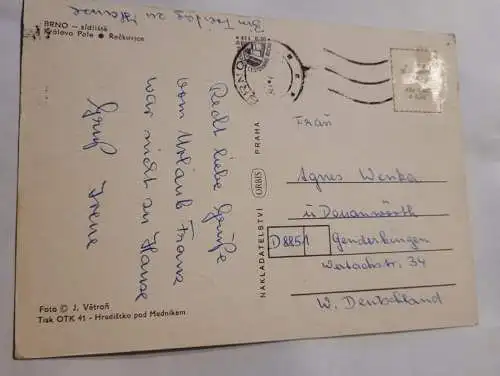 BRNO – sídliště
Královo Pole ● Řečkovice
Bin Freitag zu Hause
Recht liebe Grüße
vom Urlaub Franz
war nicht zu Hause
Gruß Irene
Foto © J. Větroň
Tisk OTK 41 - Hradištko pod Medníkem
NAKLADATELSTVÍ ORBIS PRAHA
BRNO
Frau
Agnes Wenka
ü Donauwörth
D 8851 Genderkingen
34
W. Deutschland